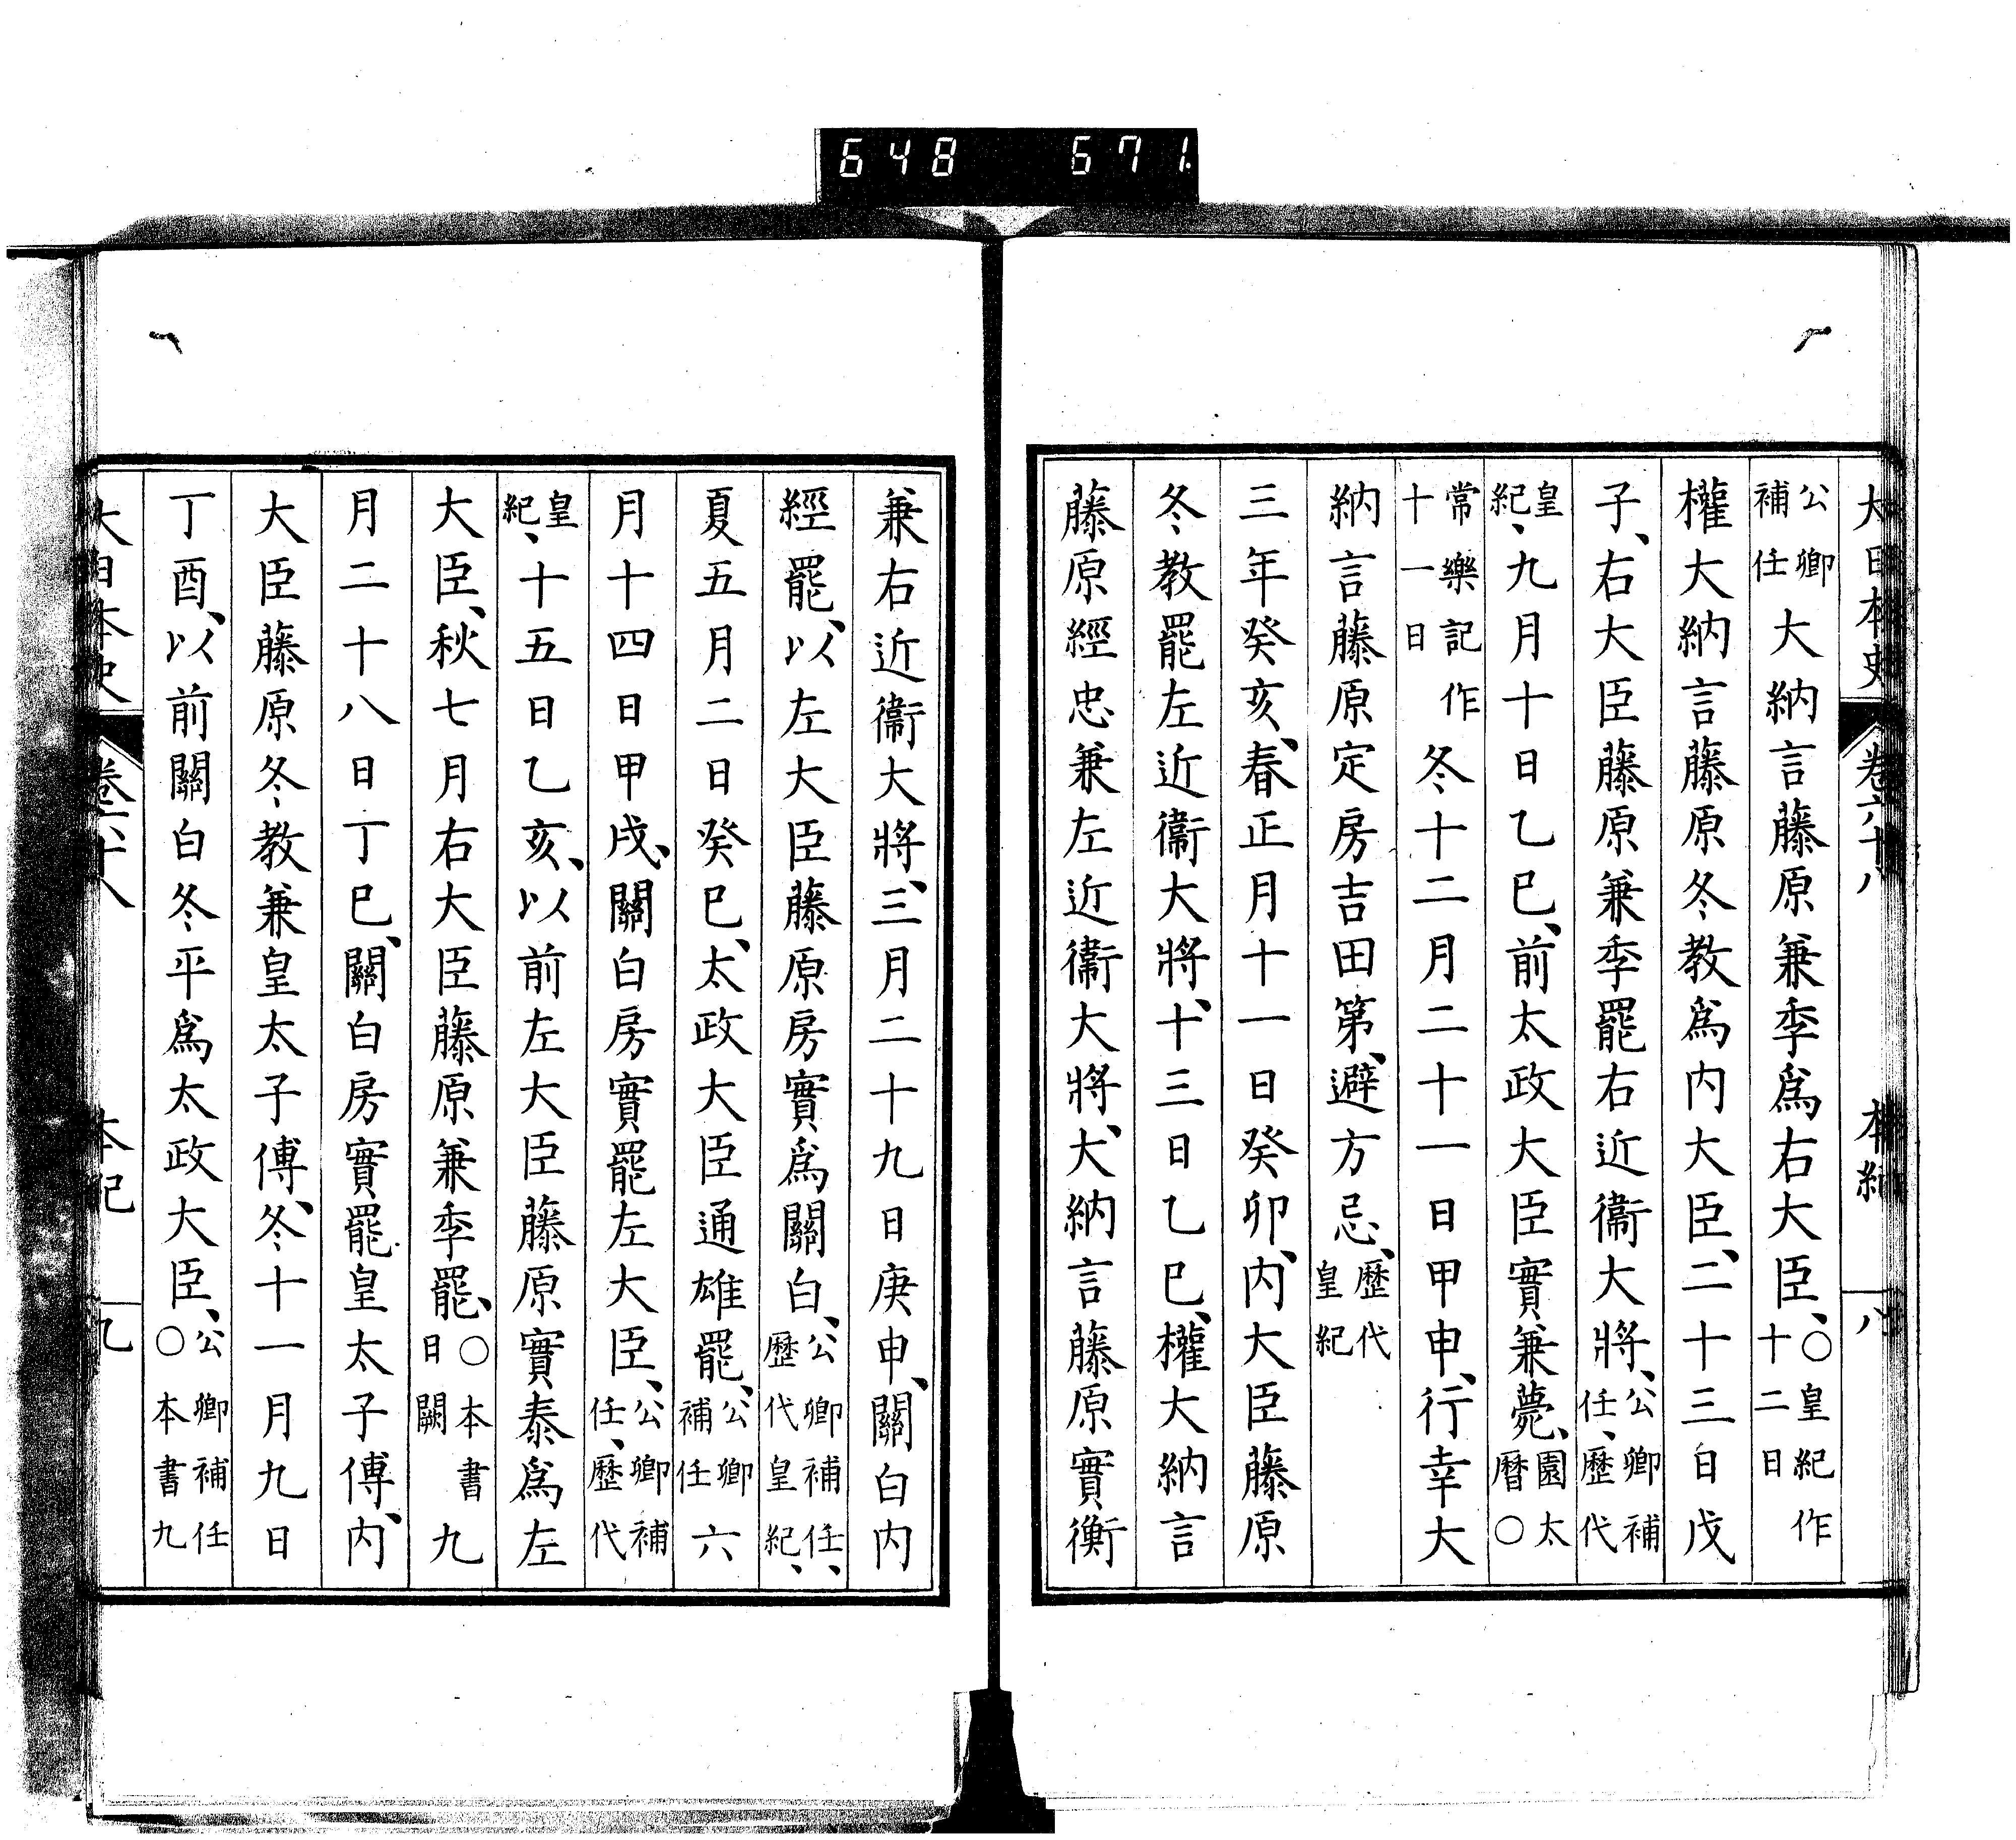 648 671.
大日本史 卷六十八 本紀 八
公卿補任大納言藤原兼季爲右大臣、○皇紀作十二日
權大納言藤原冬教爲內大臣、二十三日戊
子、右大臣藤原兼季罷右近衞大將、公卿補任、歷代
皇紀、九月十日乙巳、前太政大臣實兼薨、園太曆○
常樂記作十一日冬十二月二十一日甲申、行幸大
納言藤原定房吉田第、避方忌、歷代皇紀
三年癸亥、春正月十一日癸卯、內大臣藤原
冬教罷左近衞大將、十三日乙巳、權大納言
藤原經忠兼左近衞大將、大納言藤原實衡
兼右近衞大將、三月二十九日庚申、關白內
經罷、以左大臣藤原房實爲關白、公卿補任、歷代皇紀、
夏五月二日癸巳、太政大臣通雄罷、公卿補任六
月十四日甲戌、關白房實罷左大臣、公卿補任、歷代
皇紀、十五日乙亥、以前左大臣藤原實泰爲左
大臣、秋七月右大臣藤原兼季罷、○本書日闕九
月二十八日丁巳、關白房實罷皇太子傅、內
大臣藤原冬教兼皇太子傅、冬十一月九日
丁酉、以前關白冬平爲太政大臣、公卿補任○本書九
大日本史 卷六十八 本紀 九